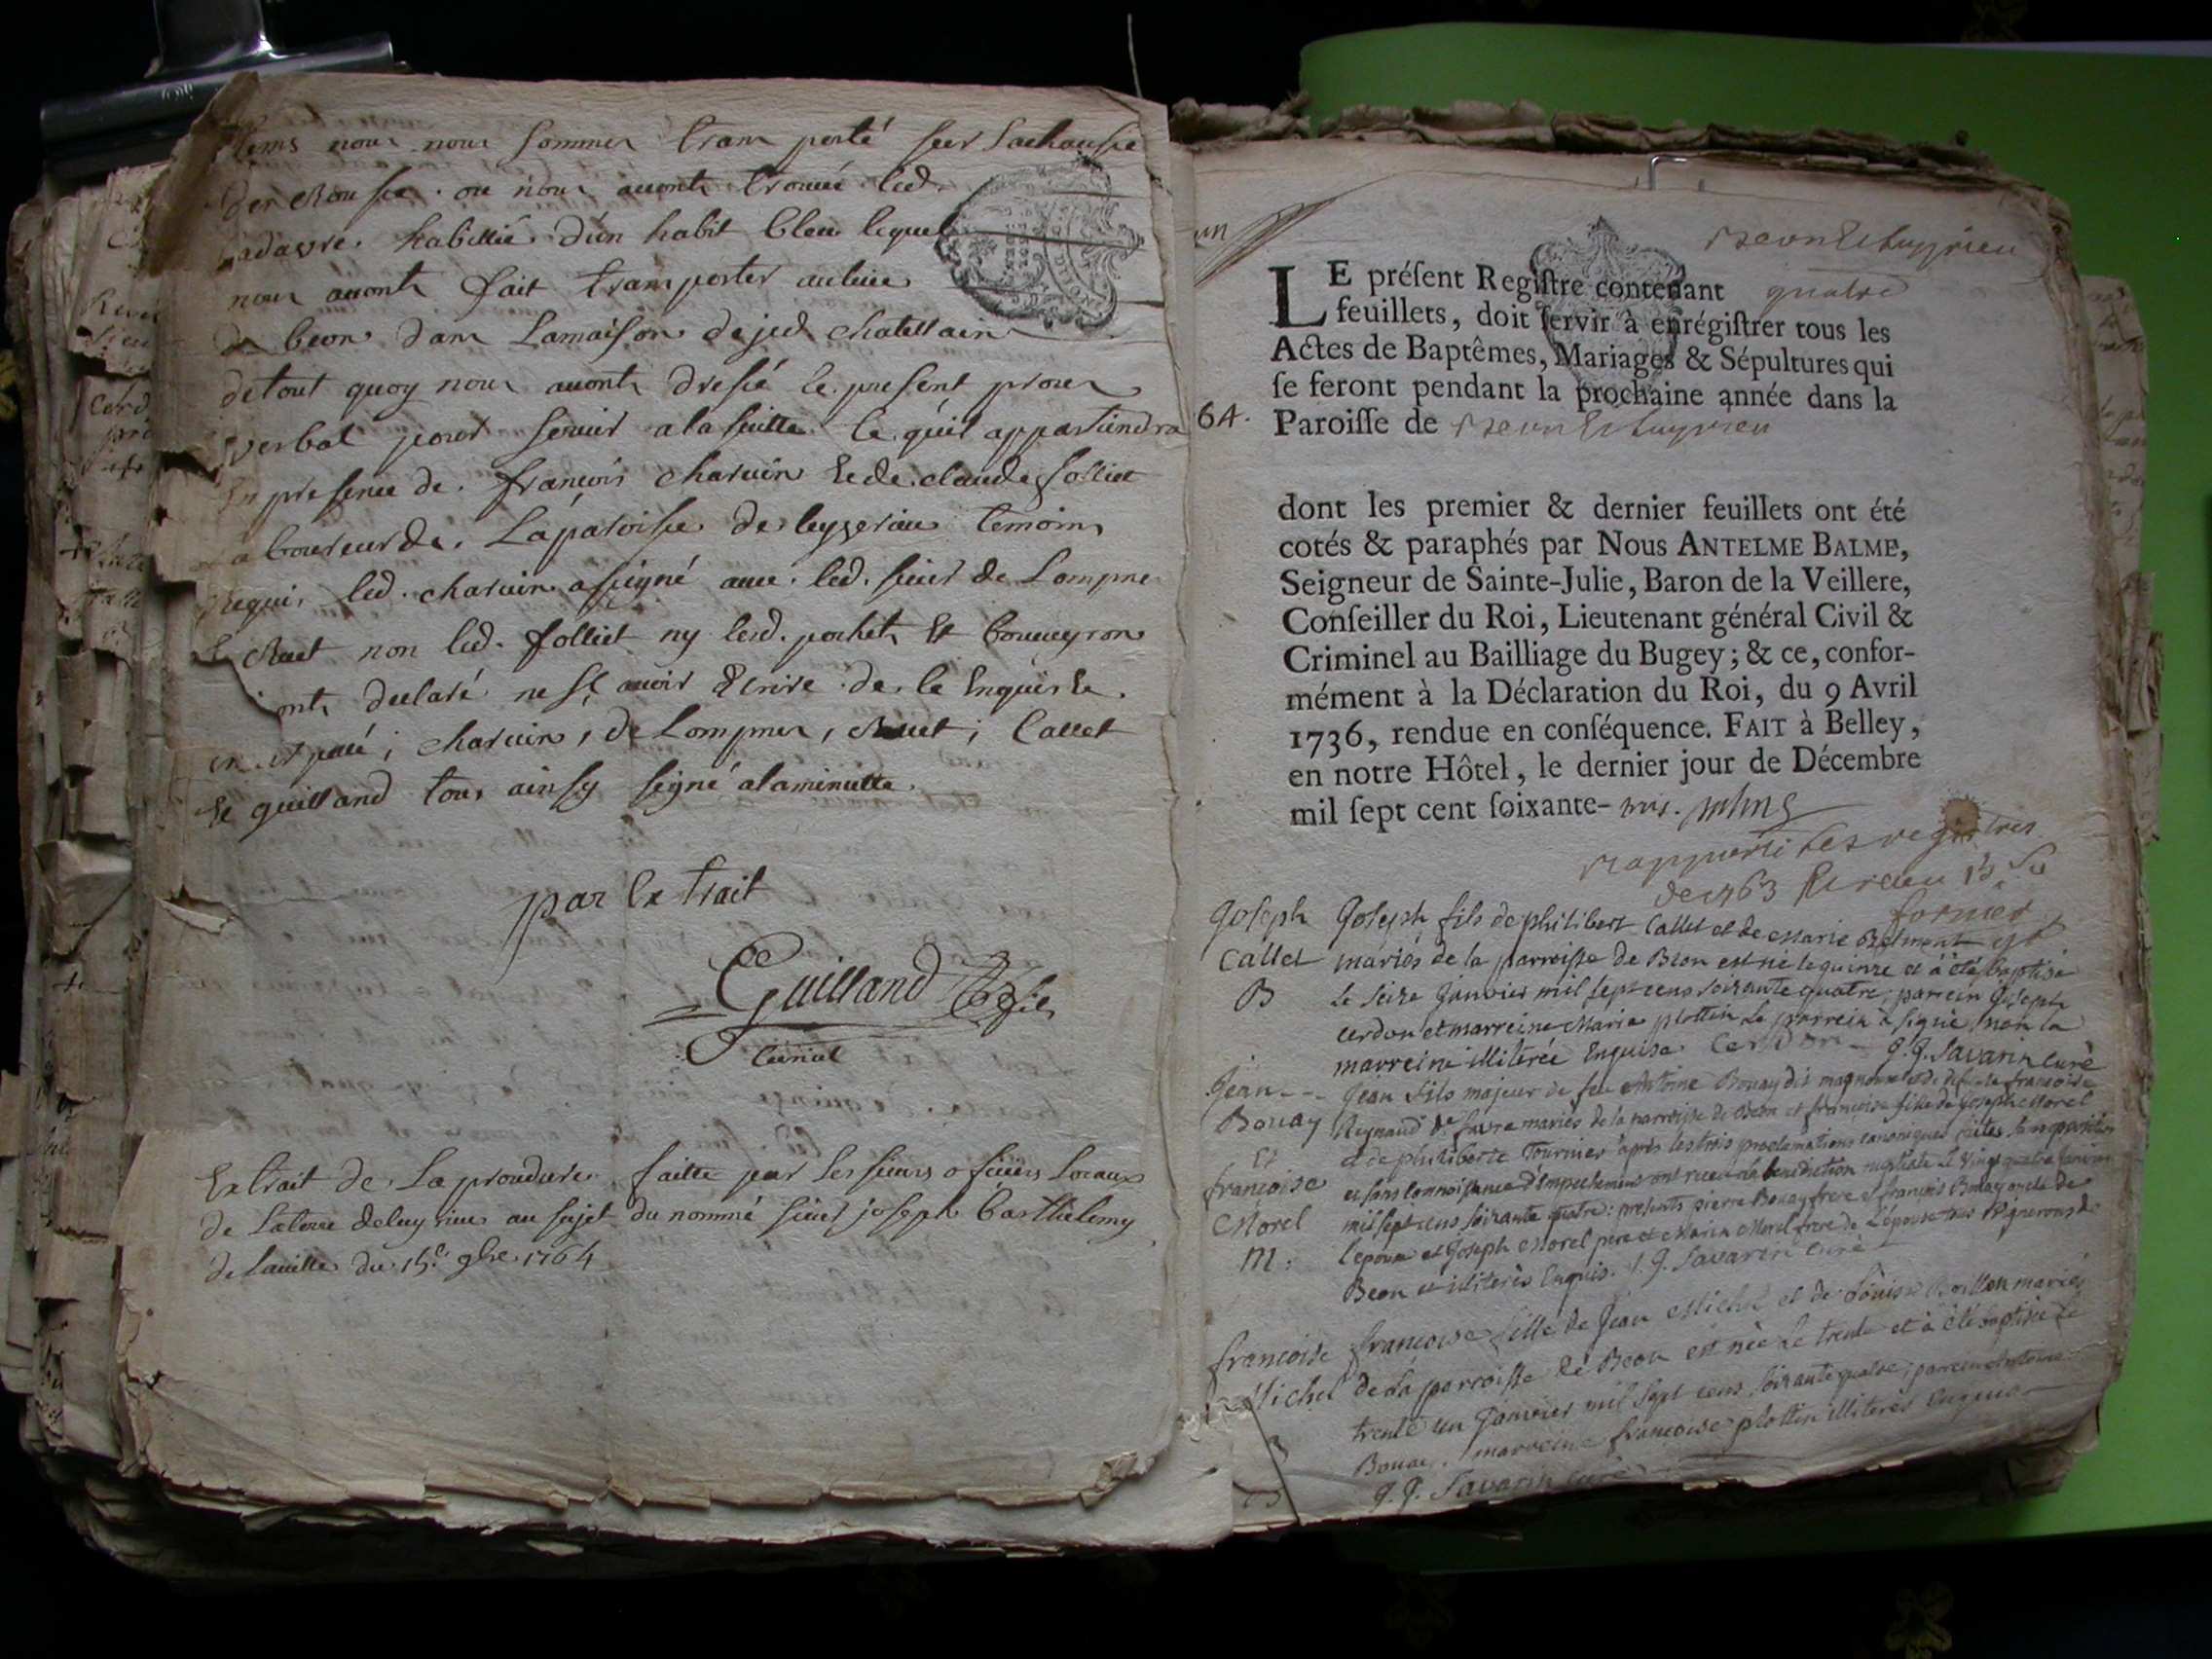 tems nous nous sommes transporté sur la chaussée
des Rousses. ou nous avonts trouvé led.
cadavre. habillié d'un habit bleu lequel
nous avonts fait transporter au lieu
de beon dans La maison dejed chatellain
de tout quoy nous avonts dressé le present proces
verbal pour servir a la suitte ce qu'il appartiendra
En presence de. françois charvin Et de claude folliet
Laboureur de. La paroisse de leyzerieu temoins
Requis led. charvin a signé avec. led. sieur de Lompnes
& Ruet non led. folliet ny lesd. pochet Et bouveyron
ont declaré ne sçavoir Ecrire de. ce Enquis &.
charvin, de Lompnes, Ruet, Callet
Et guilland tous ainsy signé a la minutte.
par Extrait
Guilland fils
Curial
Extrait de La procedure faitte par les sieurs oficiers Locaux
de au sujet du nommé sieur joseph barthelemy
delaville du 15e 9bre 1764
Beon Et Luyrieu
LE présent Registre contenant quatre
feuillets, doit servir à enrégistrer tous les
Actes de Baptêmes, Mariages & Sépultures qui
se feront pendant la prochaine année dans la
64. Paroisse de Beon Et Luyrieu
dont les premier & dernier feuillets ont été
cotés & paraphés par Nous ANTELME BALME,
Seigneur de Sainte-Julie, Baron de la Veillere,
Conseiller du Roi, Lieutenant général Civil &
Criminel au Bailliage du Bugey ; & ce, confor-
mément à la Déclaration du Roi, du 9 Avril
1736, rendue en conséquence. FAIT à Belley,
en notre Hôtel, le dernier jour de Décembre
mil sept cent soixante- trois.
rapporté les registres
de 1763 Et reçu 15 s
Joseph Joseph fils de philibert Callet et de Marie
Callet mariés de la parroisse de Beon est né le quinze et à été baptisé
B le seize Janvier mil sept cens soixante quatre, parrein Joseph
cerdon et marreine Marie plottin Le parrein à signé, non la
marreine illiterée Enquise Cerdon J. J. Savarin curè
Jean Jean fils majeur de feu Antoine Bouay dit et de defunte françoise
Bouay Reynaud de mariés de la parroisse de Beon et françoise fille de Joseph Morel
Et et de philiberte Tournier après les trois proclamations canoniques faites sans opposition
françoise et sans connoissance d'Empechement ont reçu la benediction nuptiale le vingt quatre janvier
Morel mil sept cens soixante quatre : presents pierre Bouay frere et françois Bouay oncle de
M. l'epoux et Joseph Morel pere et Morel frere de L'épouse tous vignerons de
Beon et illiterès Enquis. J. J. Savarin curè
françoise françoise fille de Jean Michel et de Louise Boillon mariés
Michel de la parroisse de Beon est née Le trente et à été baptisée Le
trente un Janvier mil sept cens soixante quatre, parrein Antoine
Bouay. marreine françoise plottin illiterès Enquis
B J. J. Savarin curè